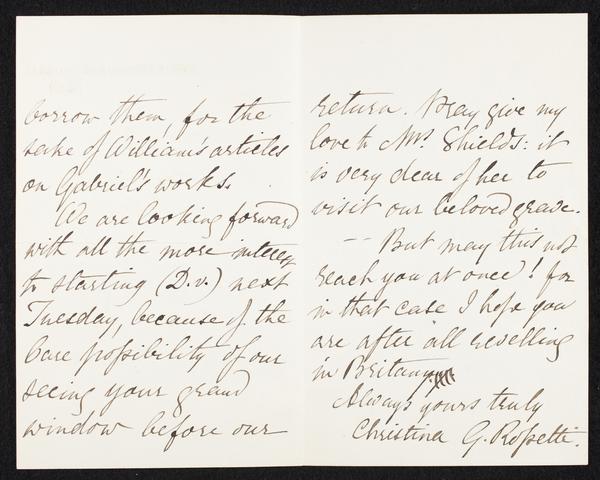 borrow them, for the
sake of William's articles
on Gabriel's works.
We are looking forward
with all the more interest
to starting (D.v.) next
Tuesday, because of the
bare possibility of our
seeing your grand
window before our
return. Pray give my
love to Mrs. Shields: it
is very dear of her to
visit our beloved grave.
-- But may this not
reach you at once! for
in that case I hope you
are after all revelling
in Britany.
Always yours truly
Christina G. Rossetti.